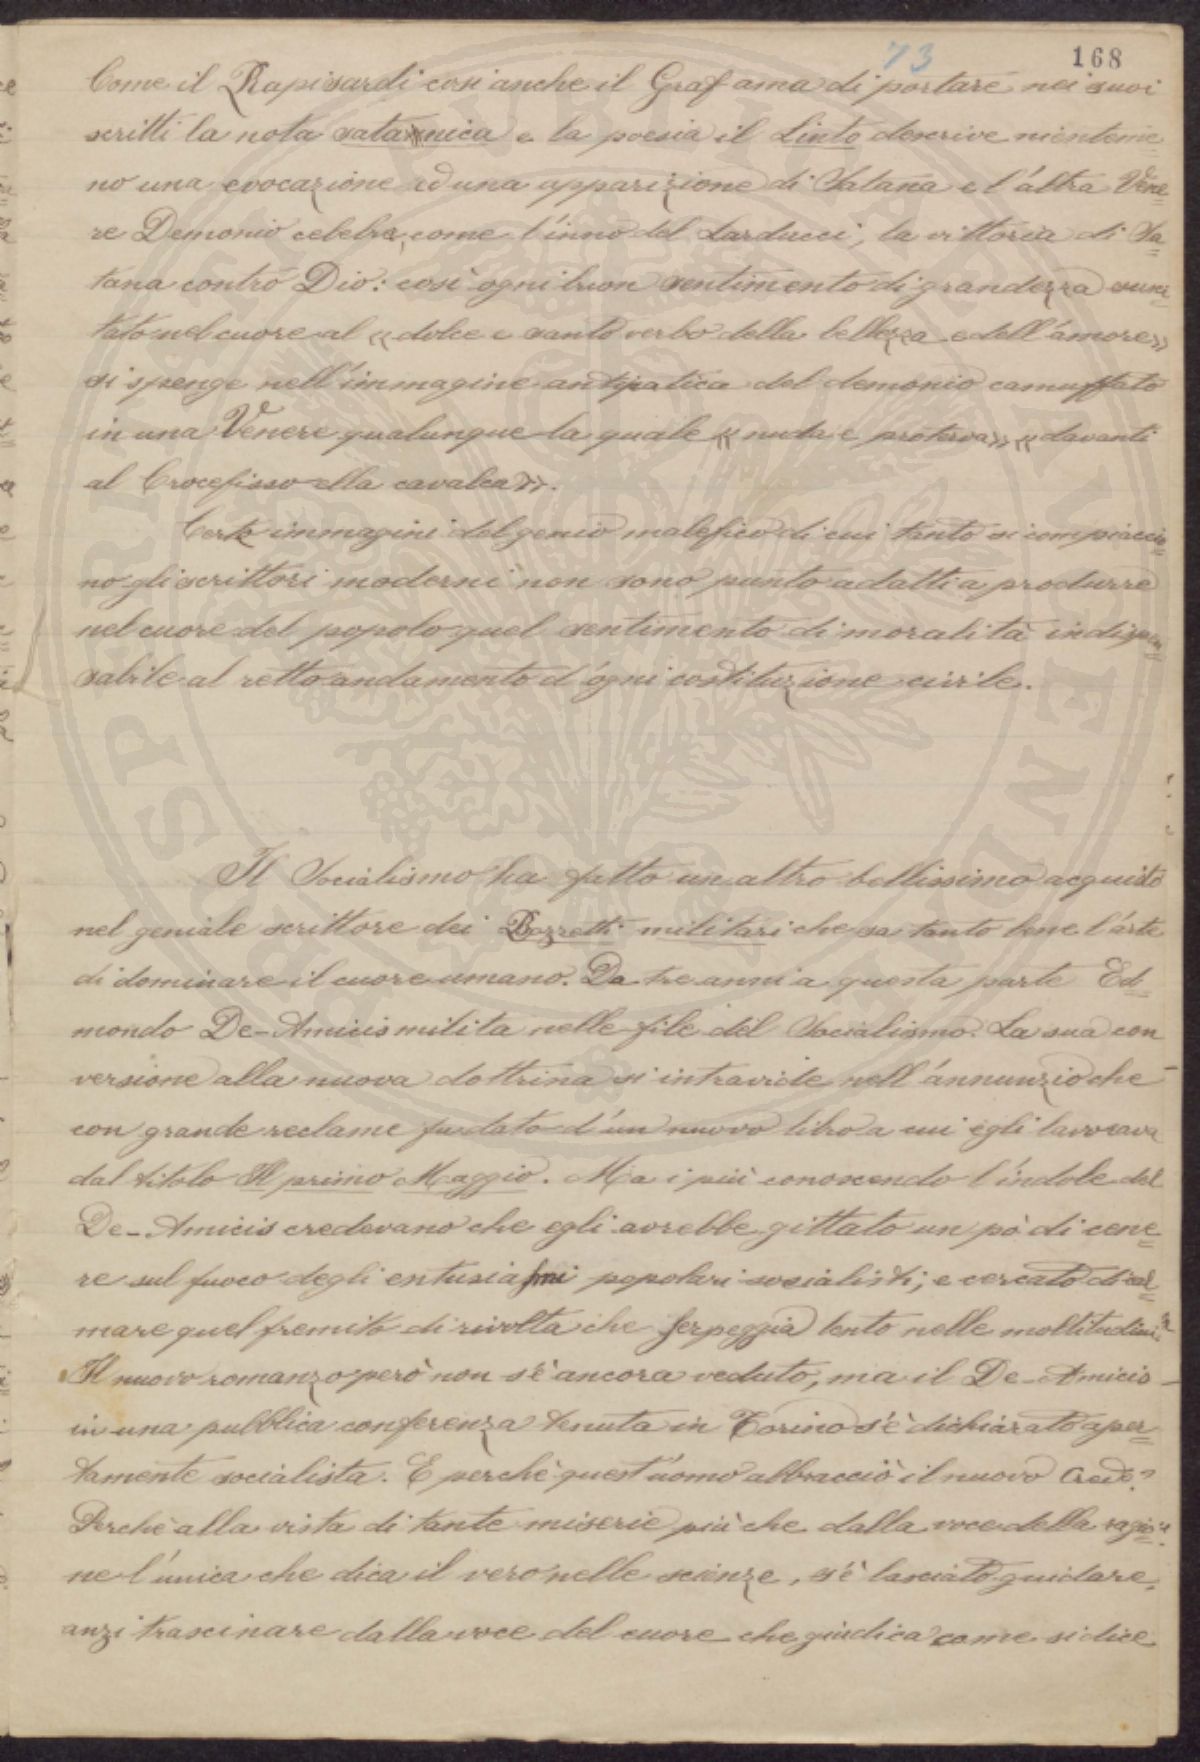 73 168
Come il Rapisardi così anche il Graf ama di portare nei suoi
scritti la nota satanica e la poesia il Linto descrive nienteme
no una evocazione ad una apparizione di Satana e l'altra Vene=
re Demonio celebra, come l'inno del Carducci, la vittoria di Sa=
tana contro Dio: così ogni buon sentimento di grandezza
tato nel cuore al « dolce e santo verbo della bellezza e dell'amore»
si spenge nell'immagine antipatica del demonio camuffato
in una Venere qualunque la quale « nuda e proterva» « davanti
al Crocefisso ella cavalca».
Certe immagini del genio malefico di cui tanto si compiaccio=
no gli scrittori moderni non sono punto adatti a produrre
nel cuore del popolo quel sentimento di moralità indispen=
sabile al retto andamento d'ogni costituzione civile.
Il Socialismo ha fatto un altro bellissimo acquisto
nel geniale scrittore dei Bozzetti militari che sa tanto bene l'arte
di dominare il cuore umano. Da tre anni a questa parte Ed=
mondo De-Amicis milita nelle file del Socialismo. La sua con
versione alla nuova dottrina si intravide nell'annunzio che
con grande reclame fu dato d'un nuovo libro a cui egli lavorava
dal titolo Il primo Maggio. Ma i più conoscendo l'indole del
De-Amicis credevano che egli avrebbe gittato un pò di cene=
re sul fuoco degli entusiasmi popolari socialisti; e cercato di cal=
mare quel fremito di rivolta che serpeggia lento nelle moltitudini.
Il nuovo romanzo però non s'è ancora veduto, ma il De-Amicis
in una pubblica conferenza tenuta in Torino s'è dichiarato aper=
tamente socialista. E perchè quest'uomo abbracciò il nuovo Credo?
Perchè alla vista di tante miserie più che dalla voce della ragio=
ne l'unica che dica il vero nelle scienze, s'è lasciato guidare,
anzi trascinare dalla voce del cuore che giudica come si dice